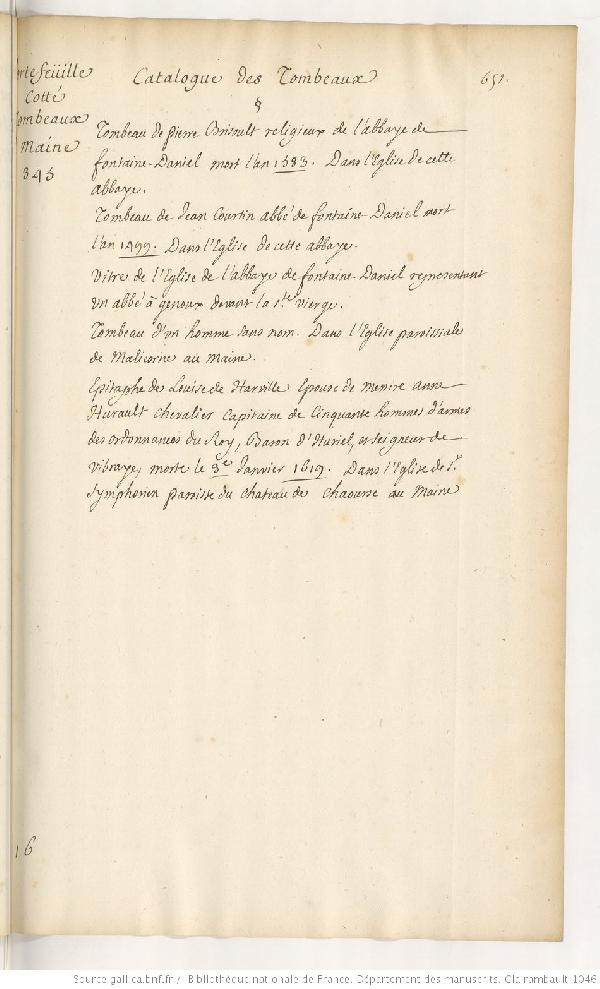 Catalogue des Tombeaux
651.
rtefeüille
Cotté
ombeaux
Maine
345
§
Tombeau de pierre religieux de l'abbaye de
fontaine-Daniel mort l'an 1583. Dans l'Eglise de cette
abbaye.
Tombeau de Jean Courtin abbé de fontaine Daniel mort
l'an 1499. Dans l'Eglise de cette abbaye.
Vitre de l'Eglise de l'abbaye de fontaine-Daniel representant
un abbé à genoux devant la Ste Vierge.
Tombeau d'un homme sans nom. Dans l'Eglise paroissiale
de Malicorne au Maine.
Epitaphe de Louise de Harville Epouse de messire anne
Hurault Chevalier Capitaine de Cinquante hommes d'armes
des ordonnances du Roy, Baron d'Huriel, et seigneur de
Vibraye, morte le 3e Janvier 1619. Dans l'Eglise de St
Symphorien paroisse du chateau de Chaourse au Maine
16
Source gallica.bnf.fr / Bibliothèque nationale de France. Département des manuscrits. Clairambault 1046